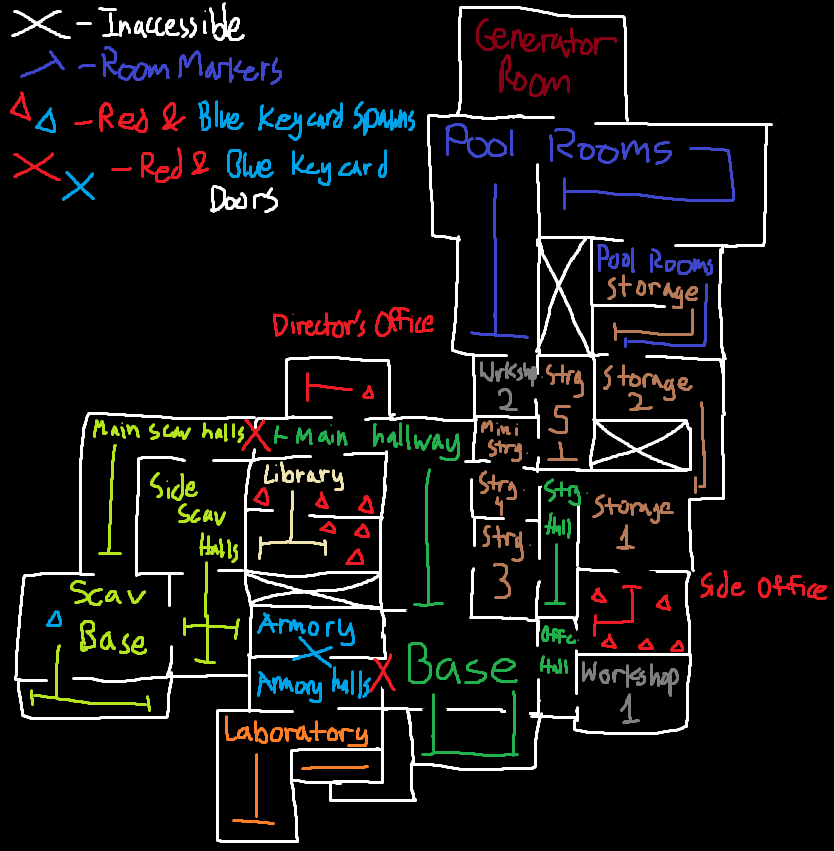 - Inaccessible
- Room Markers
- Red & Blue Keycard Spawns
- Red & Blue Keycard
Doors
Generator
Room
Pool Rooms
Pool Rooms
Storage
Director's Office
Wrkshp
2
Strg
5
Storage
2
Main scav halls
Main hallway
Mini
Strg.
Side
Scav
Halls
Library
Strg
4
Strg
Hall
Storage
1
Strg
3
Scav
Base
Side Office
Armory
Offc
Hall
Armory halls
Base
Workshop
1
Laboratory